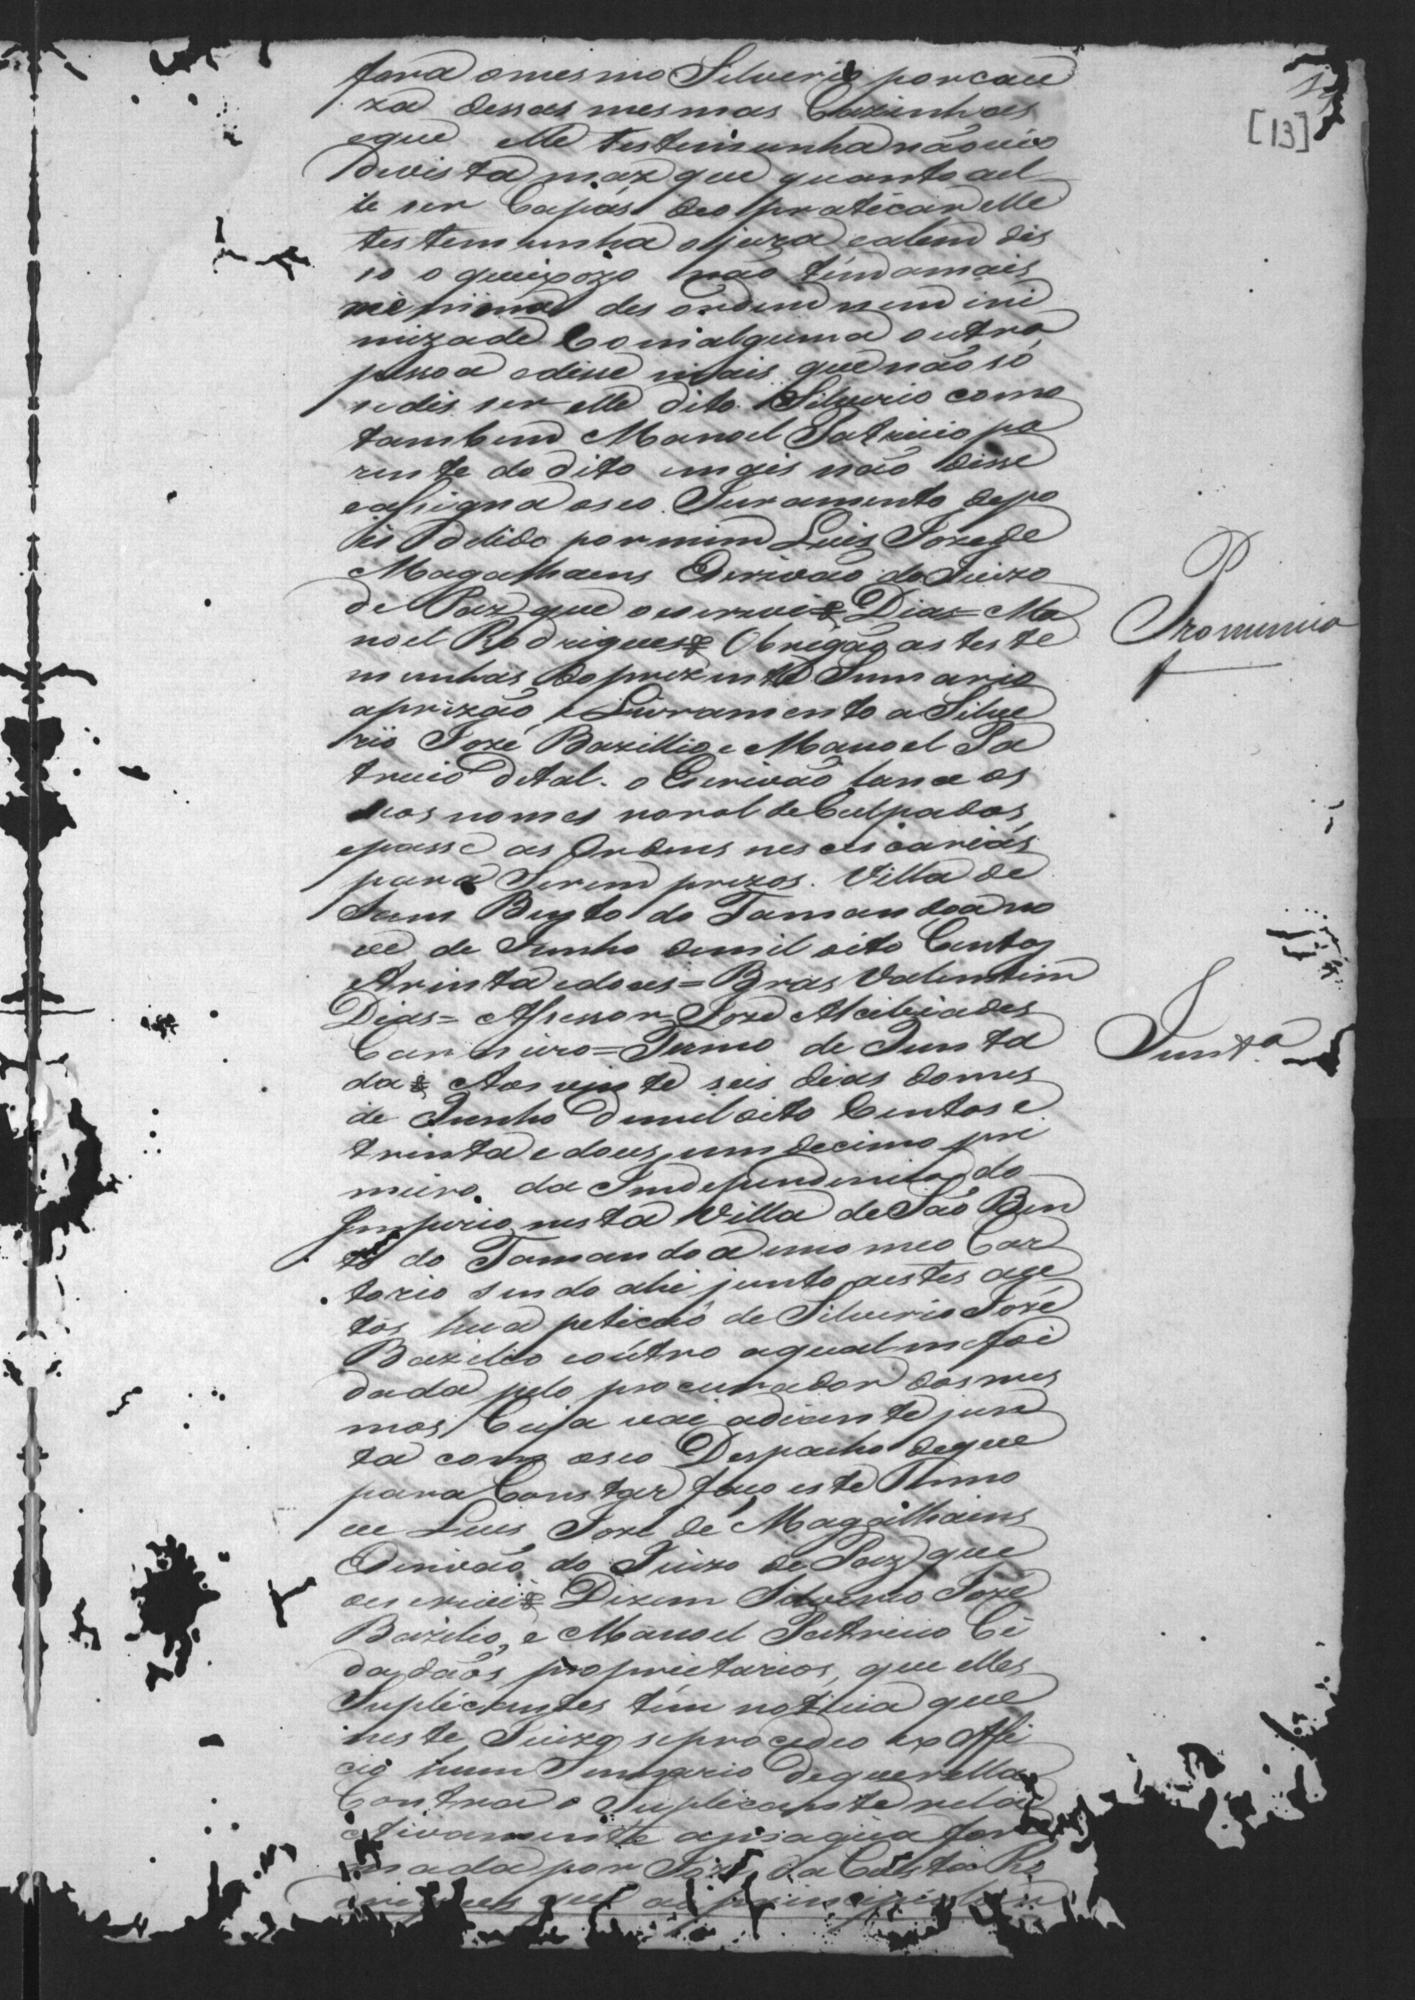 [13]
fora o mesmo Silverio por cau
za dessas mesmas Cazinhas
e que elle testemunha não vio
de vista maz que quanto a el
le ser Capás de o praticar elle
testemunha o jura e alem dis
so o queixozo não tem a mais
minima desordem nem ini
mizade Com alguma outra
pessoa e disse mais que não só
se dis ser elle dito Silverio como
tambem Manoel Patricio pa
rente do dito e mais não disse
e assigna o seo Juramento depo
is de lido por mim Luis Joze de
Magalhaens Escrivão do Juizo
de Paz que o escrevi Dias = Ma
noel Rodrigues Obrigão as teste
munhas do prezente Sumario
a prizão e Livramento a Silve
rio Jozé Bazillio e Manoel Pa
tricio de tal. o Escrivão lance os
seos nomes no rol de Culpados,
e passe as Ordens nescicarias
para Serem prezos. Villa de
Sam Bento do Tamandoa no
ve de Junho de mil oito Centos
e trinta e dous = Bras Valentim
Dias = Assessor Joze Alcibiades
Carneiro = Termo de Junta
da Aos vinte seis dias do mes
de Junho de mil oito Centos e
trinta e dous, undecimo pri
meiro da Independencia do
Imperio nesta Villa de São Ben
to do Tamandoa em o meo Car
torio sendo ahi junto a estes au
tos hua petição de Silverio Jozé
Bazilio e outro a qual me foi
dada pelo procurador dos mes
mos Cuja vai adiante jun
ta com o seo Despacho de que
para Constar faço este Termo
eu Luis Joze de Magalhains
Escrivão do Juizo de Paz que
o escrevi Dizem Silverio Jozé
Bazilio, e Manoel Patricio Ci
dadãos proprietarios, que elles
Suplicantes tem noticia que
neste Juizo se procedeo ex Offi
cio hum Sumario de querella
Contra o Suplicante rela
tivamente a
por da Costa Ro
drigues que ao principio
Pronuncia
Junta